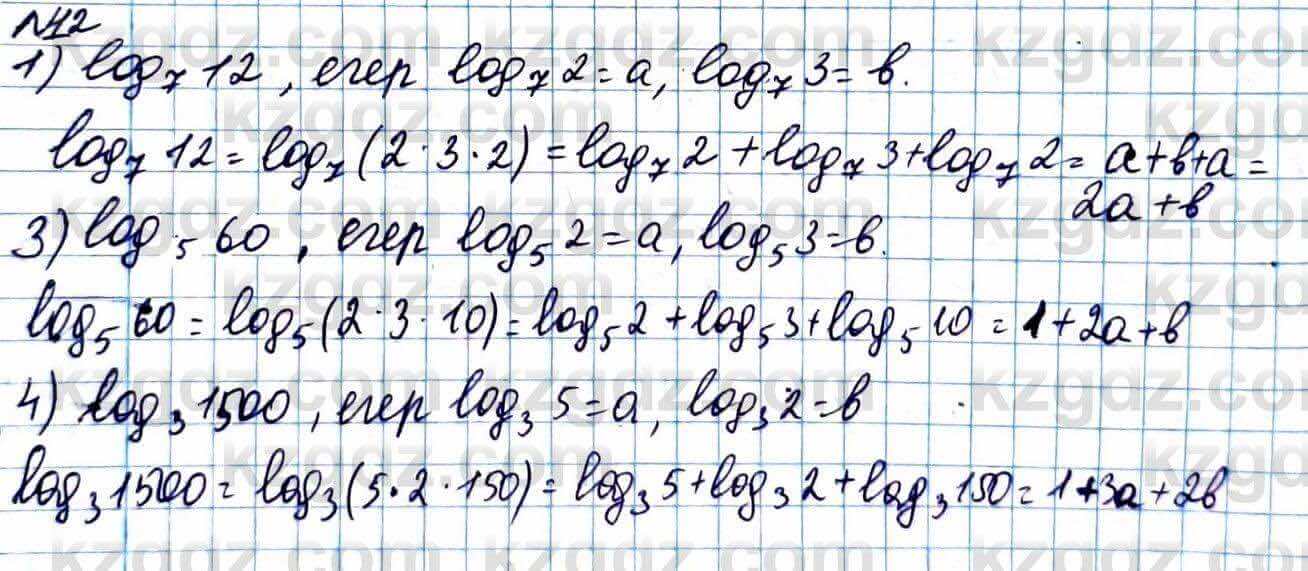 №42
1) log₇ 12, егер log₇ 2 = a, log₇ 3 = b.
log₇ 12 = log₇ (2 · 3 · 2) = log₇ 2 + log₇ 3 + log₇ 2 = a + b + a =
2a + b
3) log₅ 60, егер log₅ 2 = a, log₅ 3 = b.
log₅ 60 = log₅ (2 · 3 · 10) = log₅ 2 + log₅ 3 + log₅ 10 = 1 + 2a + b
4) log₃ 1500, егер log₃ 5 = a, log₃ 2 = b
log₃ 1500 = log₃ (5 · 2 · 150) = log₃ 5 + log₃ 2 + log₃ 150 = 1 + 3a + 2b
kzgdz.com